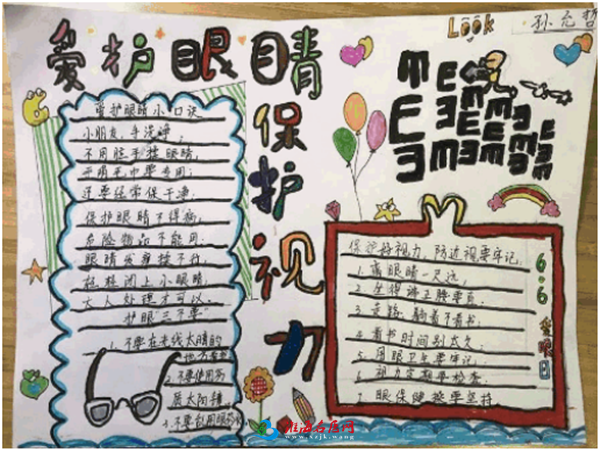 Look
孙允哲
爱护眼睛
保护视力
爱护眼睛小口诀
小朋友，手洗净，
不用脏手揉眼睛，
开晴毛巾要专用，
还要经常保干净，
保护眼睛不得病，
危险物品不能用，
眼睛发穿揉不行，
轻轻闭上小眼睛，
大人处理才可以，
护眼"三不要"
1.不要在光线太暗的
地方看书
2.不要使用劣
质太阳镜，
3.不要乱用眼药
保护好视力，防近视要牢记，
1.离眼睛一尺远，
2.坐得端正腰要直，
3.走路、躺着不看书，
4.看书时间别太久，
5.用眼卫生要牢记，
6.视力定期要检查，
7.眼保健操要坚持
6.6爱眼日
淮海台属网
www.xzjk.wang